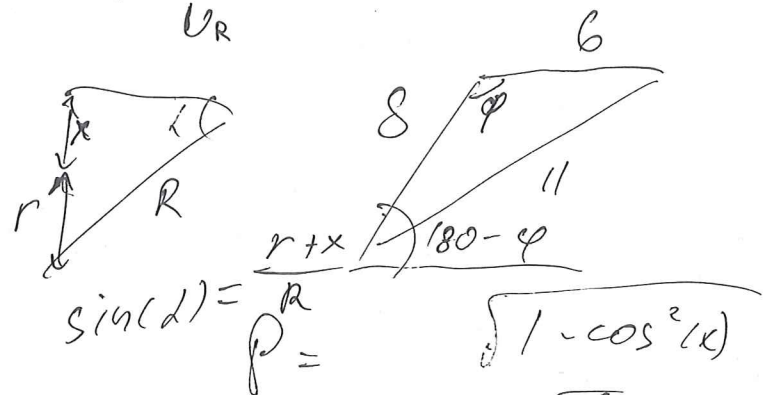 U_R
6
x
α
8
φ
r
R
11
180-φ
sin(α) = r+x / R
ρ =
√1-cos²(x)